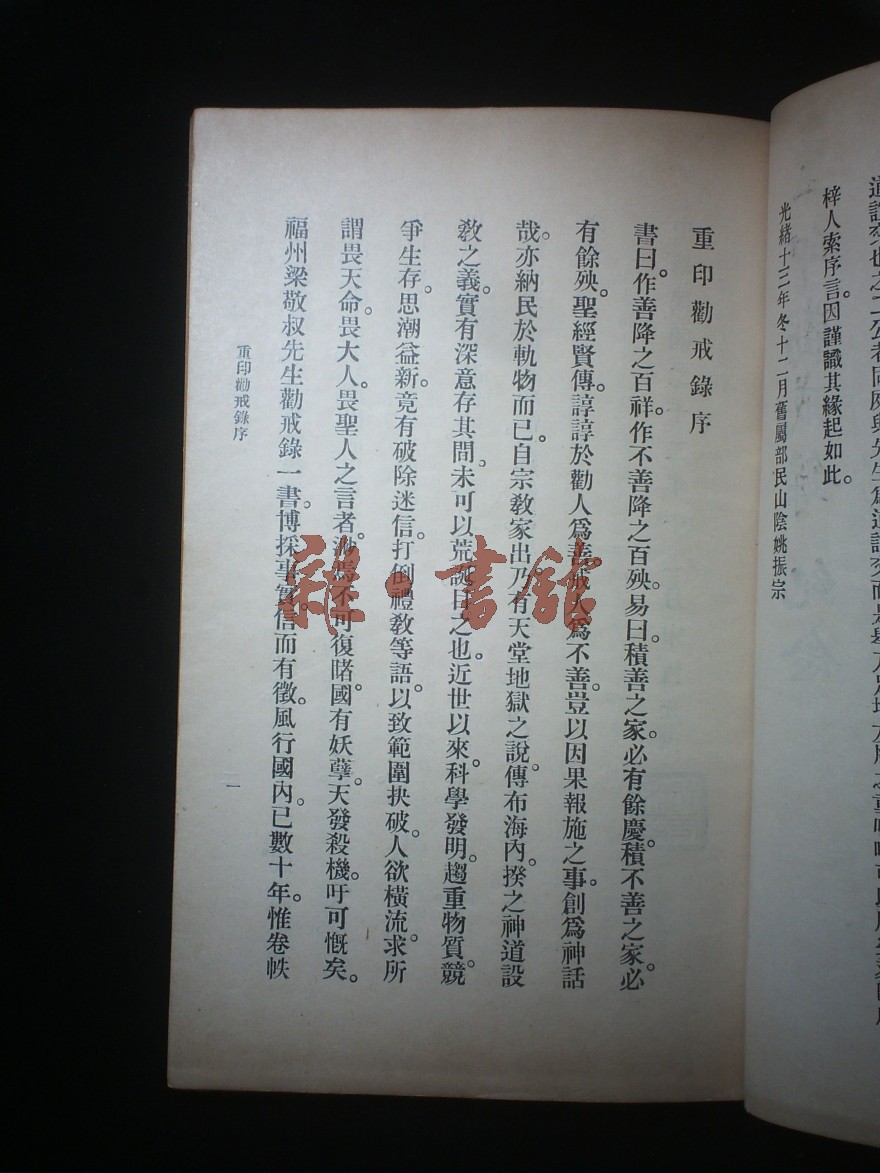 梓人索序言。因謹識其緣起如此。
光緒十三年冬十二月舊屬部民山陰姚振宗
重印勸戒錄序
書曰。作善降之百祥。作不善降之百殃。易曰。積善之家。必有餘慶。積不善之家。必
有餘殃。聖經賢傳。諄諄於勸人爲善。戒人爲不善。豈以因果報施之事。創爲神話
哉。亦納民於軌物而已。自宗教家出。乃有天堂地獄之說。傳布海內。揆之神道設
教之義。實有深意存其間。未可以荒誕目之也。近世以來。科學發明。趨重物質。競
爭生存。思潮益新。竟有破除迷信。打倒禮教等語。以致範圍抉破。人欲橫流。求所
謂畏天命。畏大人。畏聖人之言者。渺焉不可復睹。國有妖孽。天發殺機。吁可慨矣。
福州梁敬叔先生勸戒錄一書。博採事實。信而有徵。風行國內。已數十年。惟卷帙
重印勸戒錄序
一
雜·書館